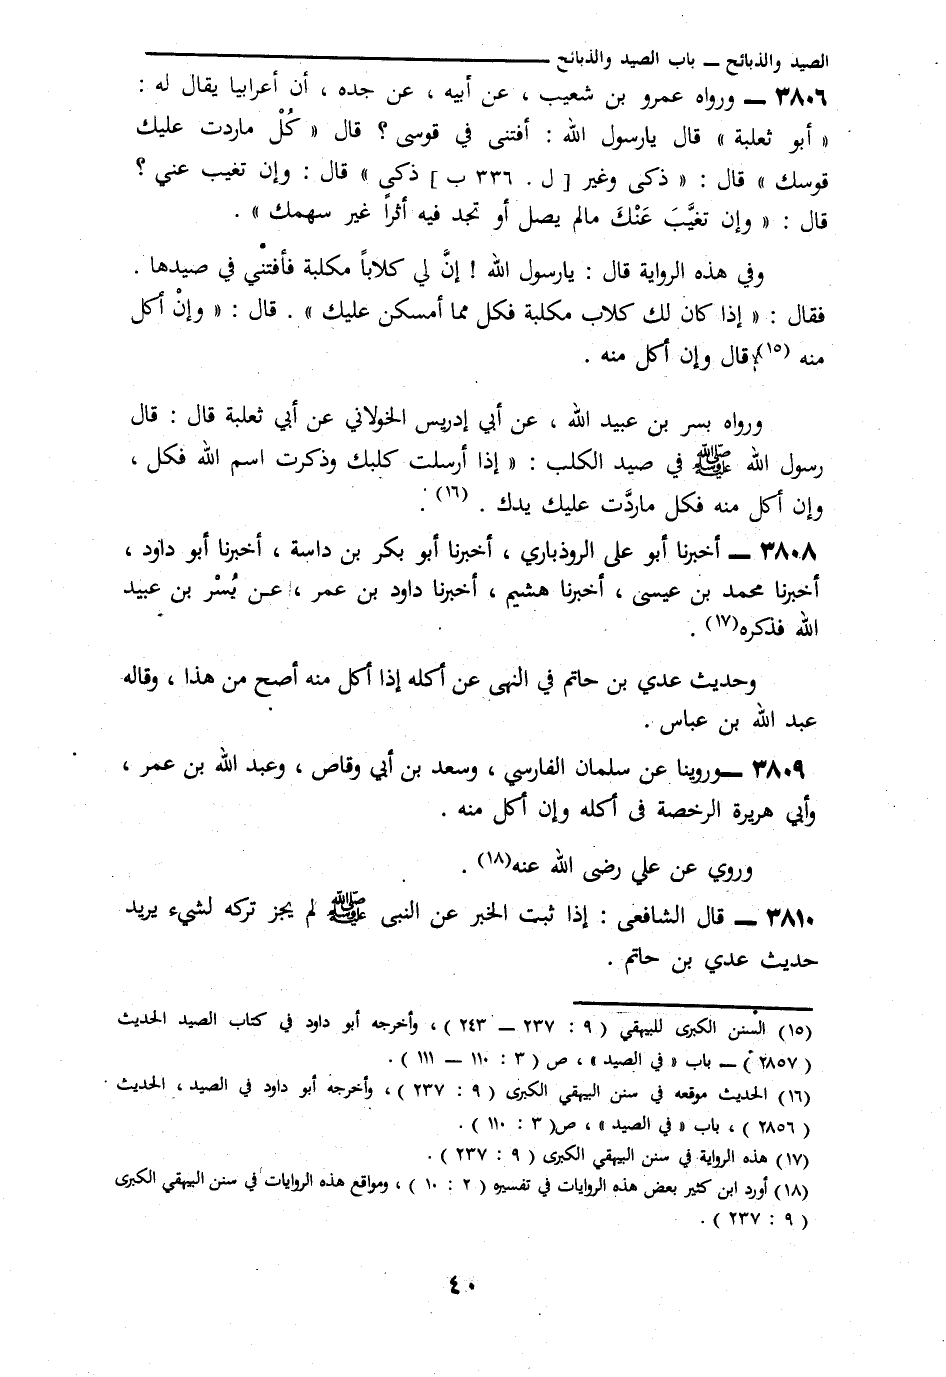 الصيد والذبائح ــ باب الصيد والذبائح
٣٨٠٦ ــ ورواه عمرو بن شعيب ، عن أبيه ، عن جده ، أن أعرابيا يقال له :
« أبو ثعلبة » قال يارسول الله : أفتنى في قوسى ؟ قال « كُلْ ماردت عليك
قوسك » قال : « ذكى وغير [ ل . ٣٣٦ ب ] ذكي » قال : وإن تغيب عني ؟
قال : « وإن تغيَّبَ عَنْكَ مالم يصل أو تجد فيه أثراً غير سهمك » .
وفي هذه الرواية قال : يارسول الله ! إنَّ لي كلاباً مكلبة فأفتنْي في صيدها .
فقال : « إذا كان لك كلاب مكلبة فكل مما أمسكن عليك » . قال : « وإنْ أكل
منه (١٥) قال وإن أكل منه .
ورواه بسر بن عبيد الله ، عن أبي إدريس الخولاني عن أبي ثعلبة قال : قال
رسول الله ﷺ في صيد الكلب : « إذا أرسلت كلبك وذكرت اسم الله فكل ،
وإن أكل منه فكل ماردَّت عليك يدك . (١٦) .
٣٨٠٨ ــ أخبرنا أبو على الروذباري ، أخبرنا أبو بكر بن داسة ، أخبرنا أبو داود ،
أخبرنا محمد بن عيسى ، أخبرنا هشيم ، أخبرنا داود بن عمر ، عن يُسْر بن عبيد
الله فذكره(١٧) .
وحديث عدي بن حاتم في النهى عن أكله إذا أكل منه أصح من هذا ، وقاله
عبد الله بن عباس .
٣٨٠٩ ــوروينا عن سلمان الفارسي ، وسعد بن أبي وقاص ، وعبد الله بن عمر ،
وأبي هريرة الرخصة فى أكله وإن أكل منه .
وروي عن علي رضى الله عنه(١٨) .
٣٨١٠ ــ قال الشافعى : إذا ثبت الخبر عن النبى ﷺ لم يجز تركه لشيء يريد
حديث عدي بن حاتم .
(١٥) السنن الكبرى للبيهقي ( ٩ : ٢٣٧ ــ ٢٤٣ ) ، وأخرجه أبو داود في كتاب الصيد الحديث
( ٢٨٥٧ ) ــ باب « في الصيد » ، ص ( ٣ : ١١٠ ــ ١١١ ) .
(١٦) الحديث موقعه في سنن البيهقي الكبرى ( ٩ : ٢٣٧ ) ، وأخرجه أبو داود في الصيد ، الحديث
( ٢٨٥٦ ) ، باب « في الصيد » ، ص( ٣ : ١١٠ ) .
(١٧) هذه الرواية في سنن البيهقي الكبرى ( ٩ : ٢٣٧ ) .
(١٨) أورد ابن كثير بعض هذه الروايات في تفسيره ( ٢ : ١٠ ) ، ومواقع هذه الروايات في سنن البيهقي الكبرى
( ٩ : ٢٣٧ ) .
٤٠